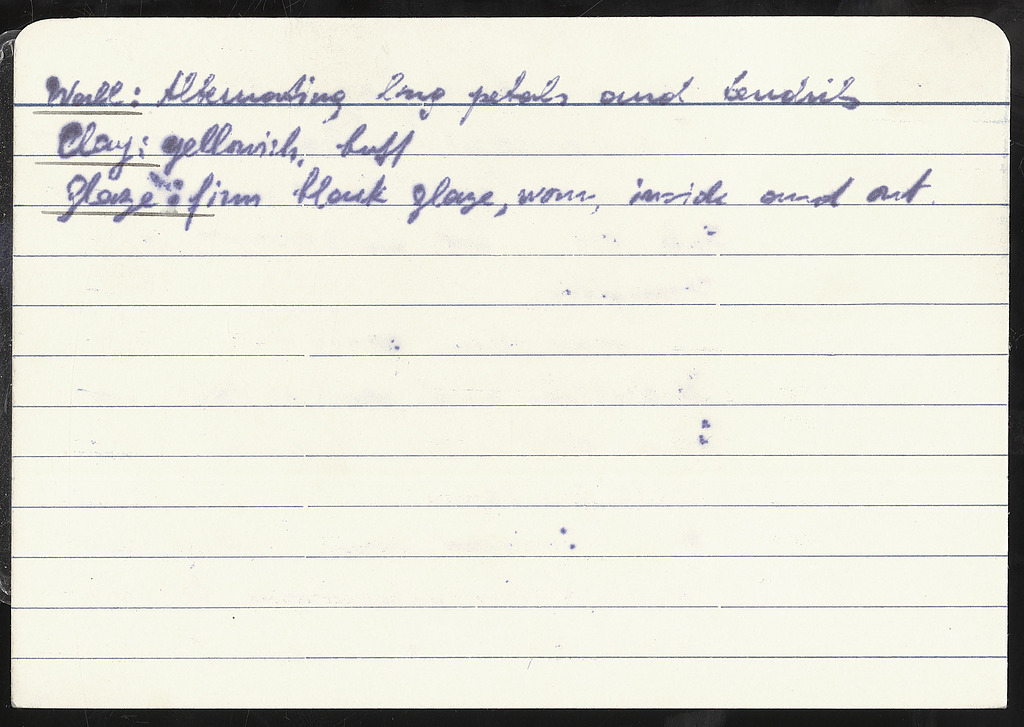 Wall: Alternating long petals and tendrils
Clay: yellowish, buff
Glaze: firm black glaze, worn, inside and out.